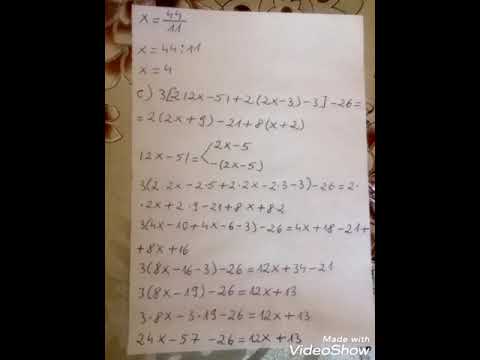 x = 44/11
x = 44:11
x = 4
c) 3[2|2x-5|+2(2x-3)-3]-26=
=2(2x+9)-21+8(x+2)
|2x-5|=< 2x-5
-(2x-5)
3(2·2x-2·5+2·2x-2·3-3)-26=2·
·2x+2·9-21+8x+8·2
3(4x-10+4x-6-3)-26=4x+18-21+
+8x+16
3(8x-16-3)-26=12x+34-21
3(8x-19)-26=12x+13
3·8x-3·19-26=12x+13
24x-57-26=12x+13
Made with
VideoShow